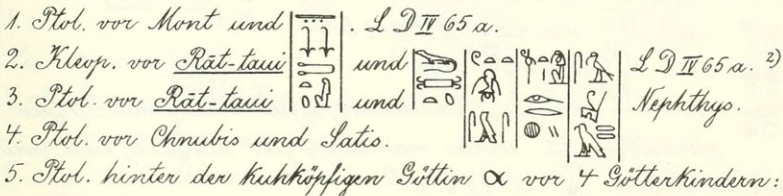 1. Ptol. vor Mont und . L D IV 65 a.
2. Kleop. vor Rāt-taui und L D IV 65 a. 2)
3. Ptol. vor Rāt-taui und Nephthys.
4. Ptol. vor Chnubis und Satis.
5. Ptol. hinter der kuhköpfigen Göttin α vor 4 Götterkindern: